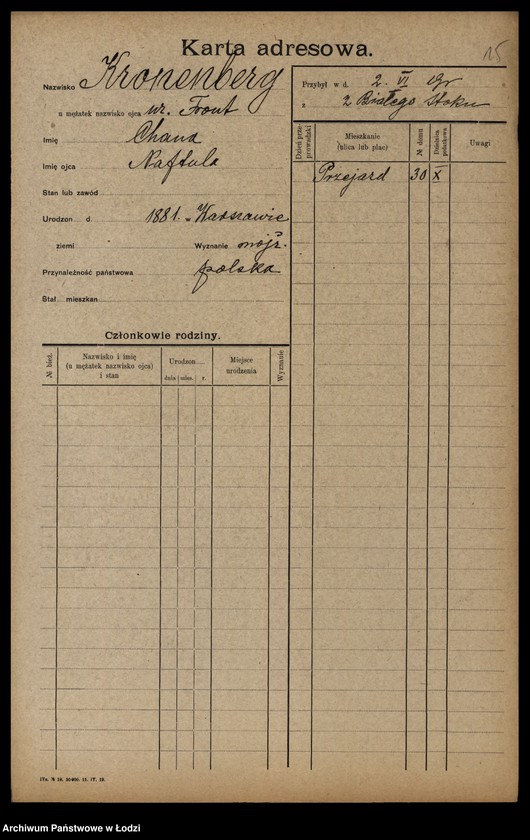 15
Karta adresowa.
Nazwisko Kronenberg
u mężatek nazwisko ojca ur. Front
Imię Chana
Imię ojca Naftula
Stan lub zawód
Urodzon d. 1881. w Warszawie
ziemi Wyznanie mojż.
Przynależność państwowa polska
Stał. mieszkan
Przybył w d. 2. VI 19 r.
z z Białego Stoku
Dzień przeprowadzki
Mieszkanie
(ulica lub plac)
№ domu
Dzielnica podatkowa
Uwagi
Przejazd 30 X
Członkowie rodziny.
№ bież.
Nazwisko i imię
(u mężatek nazwisko ojca)
i stan
Urodzon
dnia mies. r.
Miejsce
urodzenia
Wyznanie
Archiwum Państwowe w Łodzi